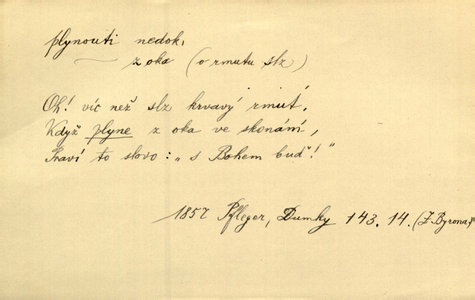 plynouti nedok.
z oka (o rmutu slz)
Oh! víc než slz krvavý rmut,
Když plyne z oka ve skonání,
Traví to slovo: „s Bohem buď!"
1857 Pfleger, Dumky 143. 14. (Z Byrona)